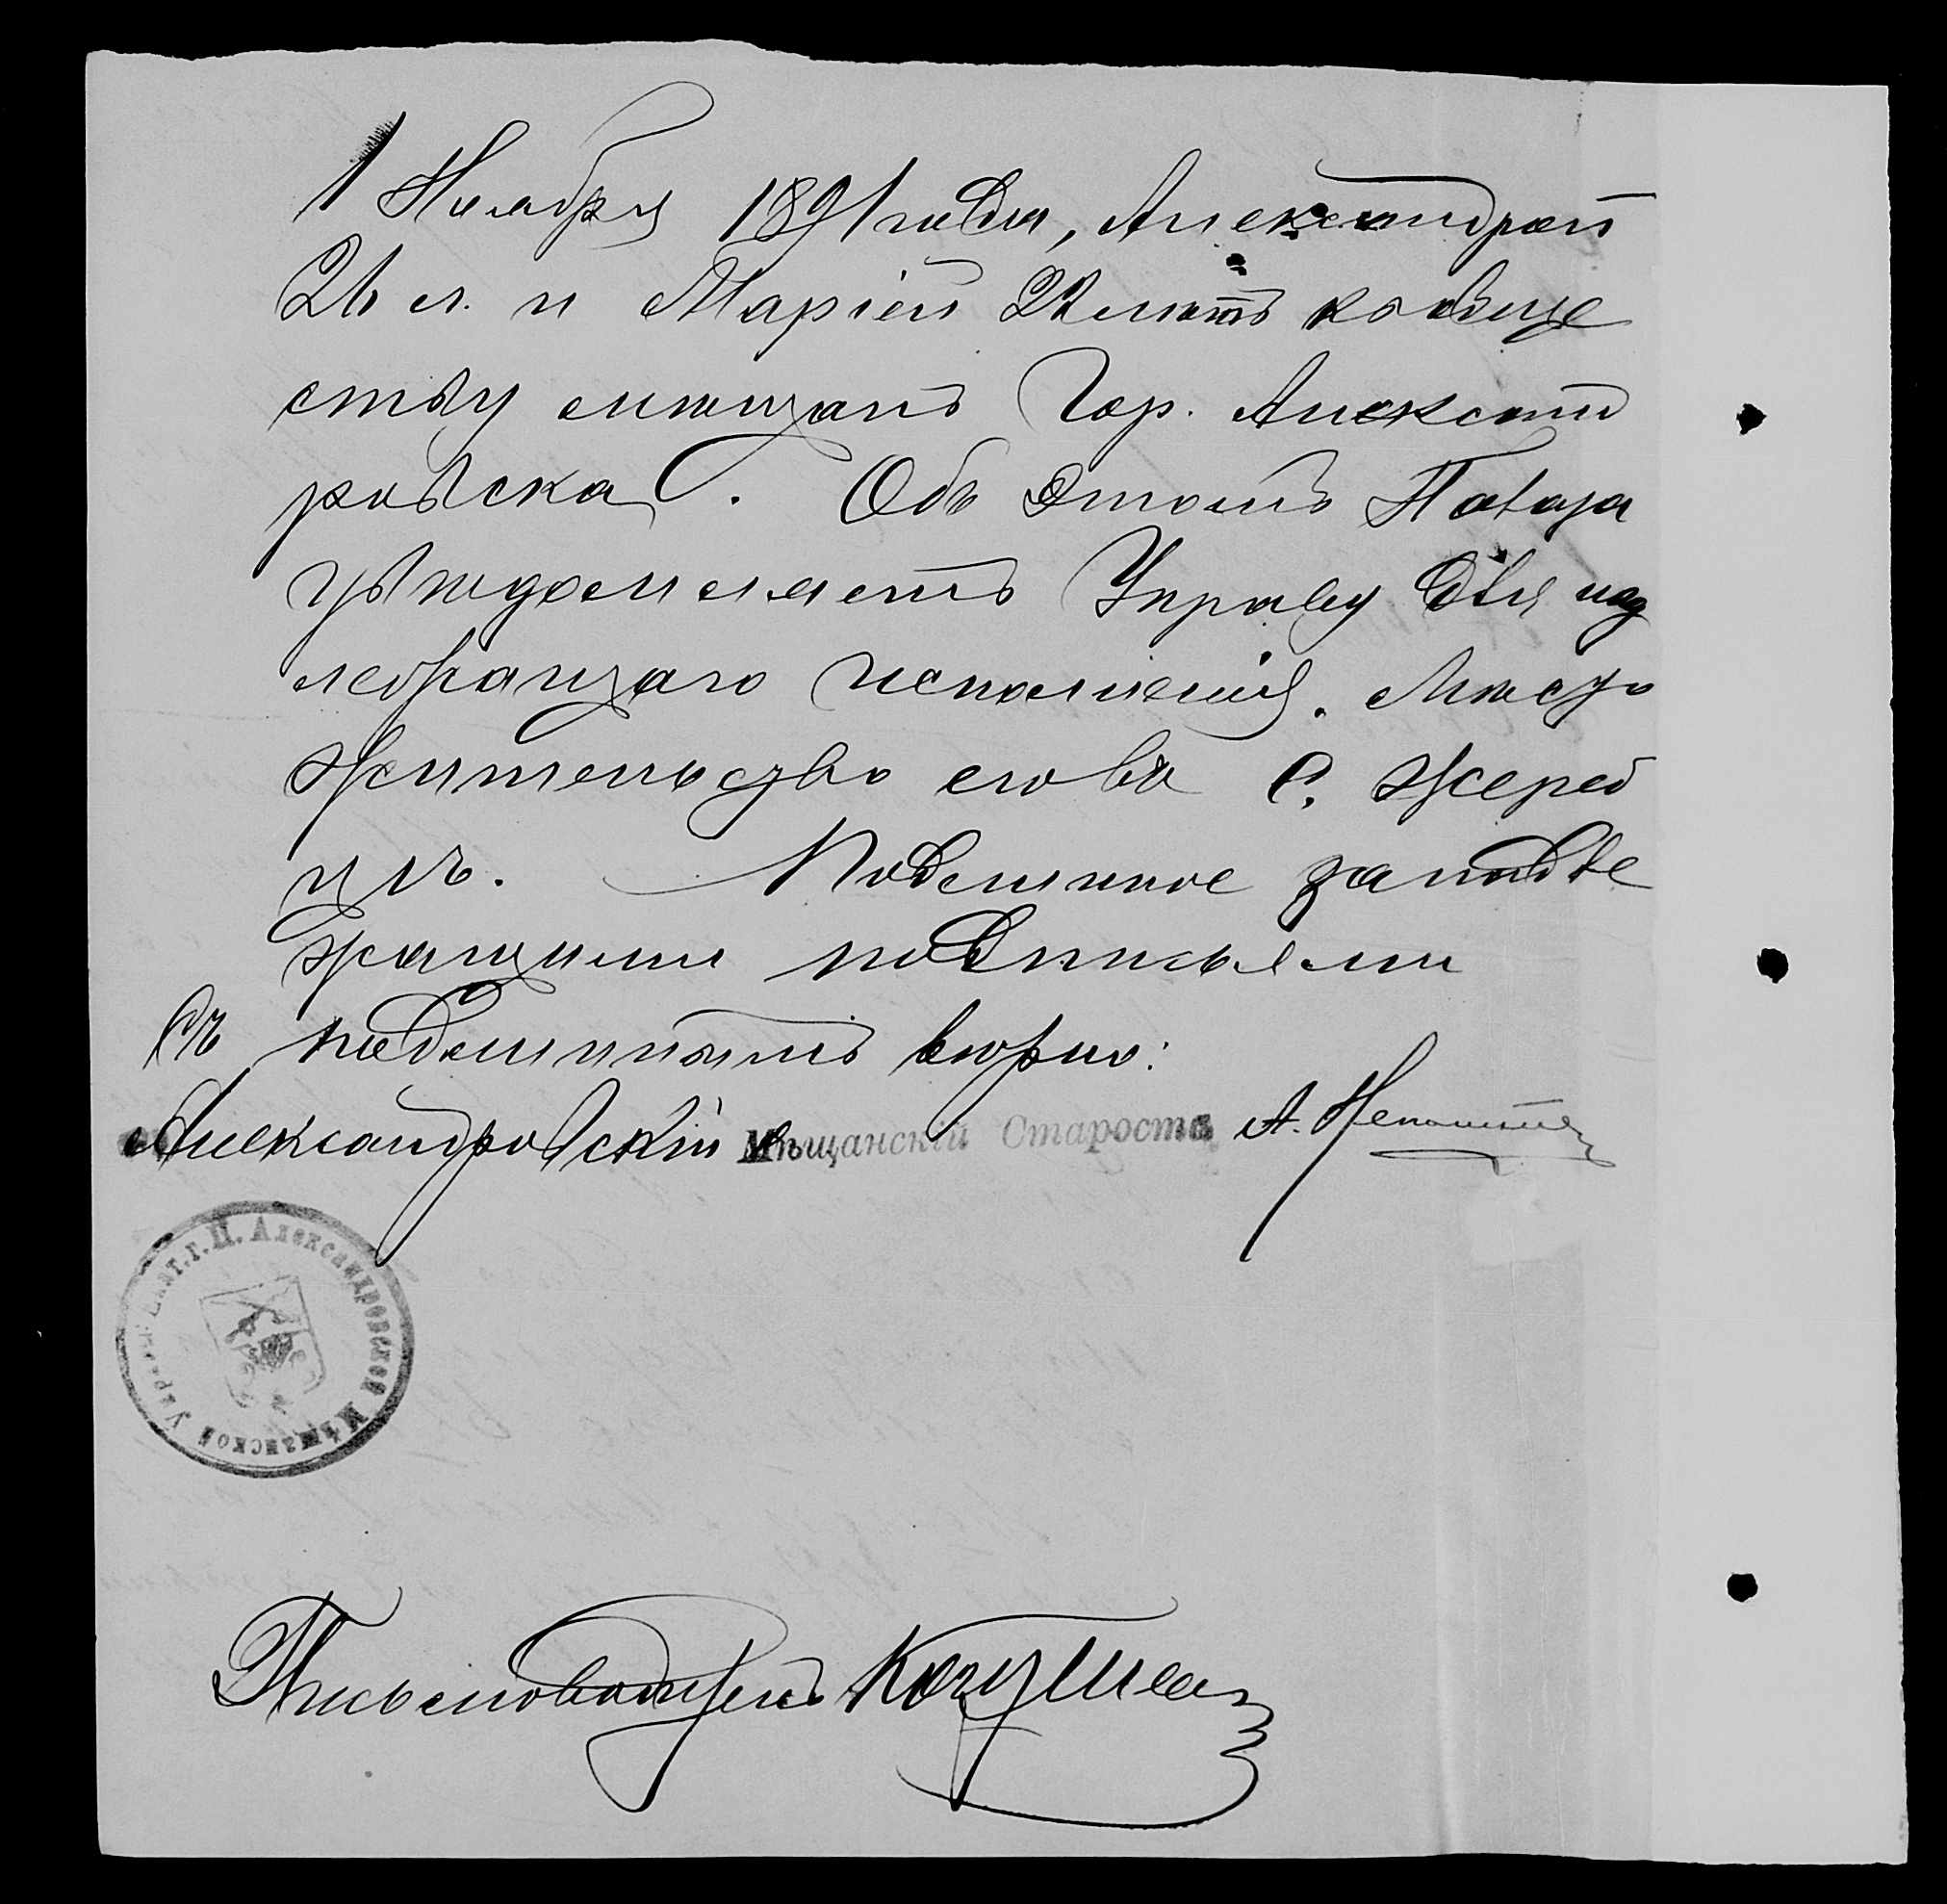 1 Ноября 1891 года, Александрой
26 л. и Маріей 22 лѣтъ къ обще
ству мѣщанъ Гор. Александ
ровска. Объ этомъ Палата
увѣдомляетъ Управу для над
лежащаго исполненія. Мѣсто
жительство его въ С. Жереб
цѣ. Подлинное за надле
жащими подписями
Съ подлиннымъ вѣрно:
Александровскій Мѣщанскій Староста А.
г. П. Александровской Мѣщанской
Письмоводитель